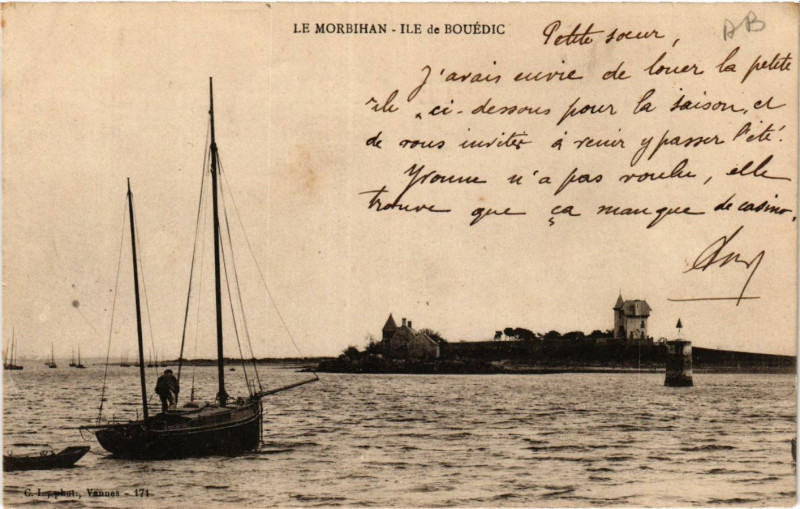 LE MORBIHAN - ILE de BOUÉDIC
AB
Petite soeur,
J'avais envie de louer la petite
île ci-dessous pour la saison, et
de vous inviter à venir y passer l'été.
Yvonne n'a pas voulu, elle
trouve que ça manque de casino.
C. L., phot., Vannes - 171